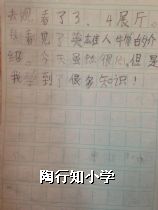 去观看了3、4展厅
我看见了英雄人牛第白勺介
绍。今天虽然很但是
我学到了很多知识！
陶行知小学